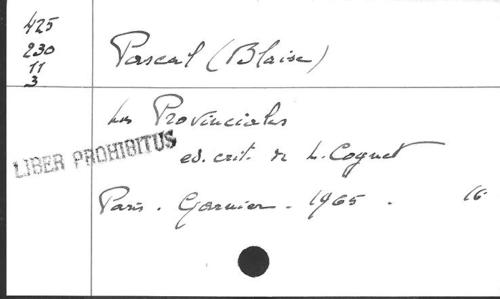 425
230
11
3
Pascal (Blaise)
Les Provinciales
LIBER PROHIBITUS
ed. crit. de L. Cognet
Paris. Garnier. 1965. 16